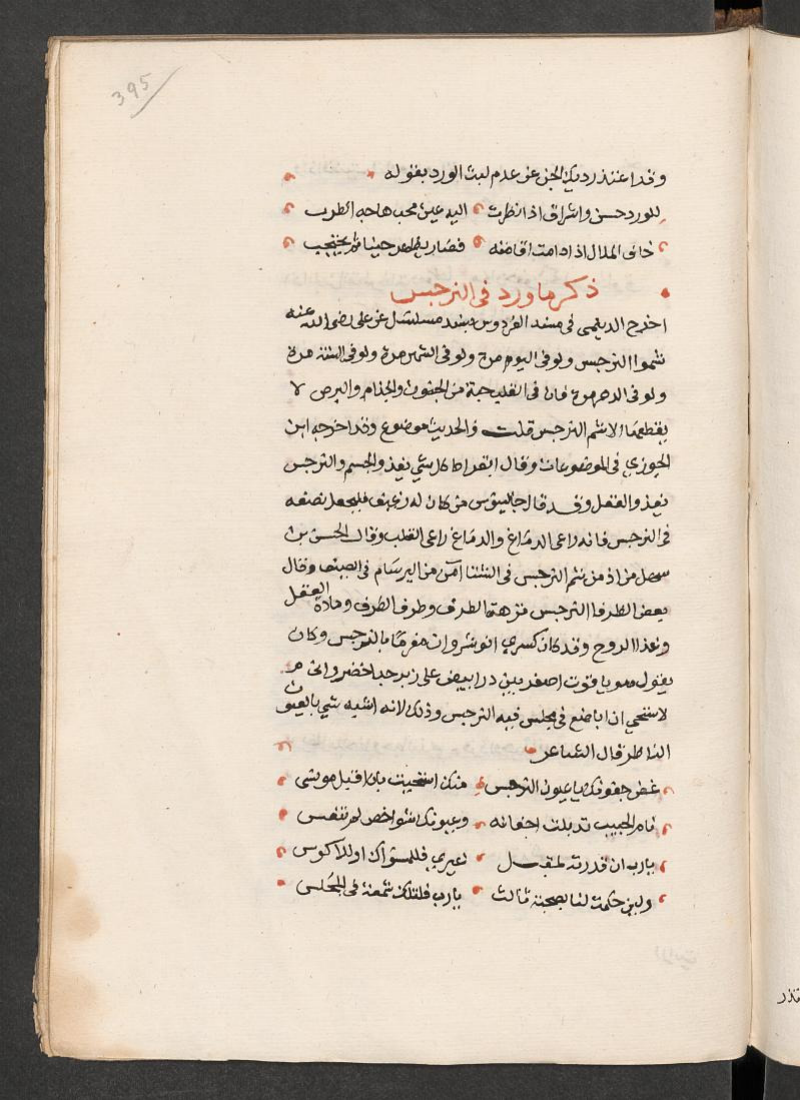 395
وقد اعتذر ديك الجن عن عدم لبث الورد بقوله
للورد حسن واشراق اذا نظرت اليه عين محب هاجه الطرب
خاف الملال اذا دامت اقامته فصار يظهر حينا ثم يحتجب
ذكر ما ورد في النرجس
اخرج الديلمي في مسند الفردوس بسند مسلسل عن علي رضي الله عنه
شموا النرجس ولو في اليوم مرة ولو في الشهر مرة ولو في السنة مرة
ولو في الدهر مرة فان في القلب حبة من الجنون والجذام والبرص لا
يقطعها الا شم النرجس قلت والحديث موضوع وقد اخرجه ابن
الجوزي في الموضوعات وقال ابقراط كل شي يغذو الجسم والنرجس
يغذو العقل وقد قال جالينوس من كان له رغيف فليجعل نصفه
في النرجس فانه راعي الدماغ والدماغ راعي القلب وقال الحسن بن
سهل من ادمن شم النرجس في الشتا امن من البرسام في الصيف وقال
بعض الظرفا النرجس نزهة الطرف وظرف الظرف ومادة العقل
وغذا الروح وقد كان كسري انوشروان مغرما بالنرجس وكان
يقول هو ياقوت اصفر بين در ابيض على زبرجد اخضر واني
لاستحي ان اباضع في مجلس فيه النرجس وذلك لانه اشبه شي بالعيون
الناظر قال الشاعر
غض جفونك يا عيون النرجس منك استحييت بان اقبل مونسي
نام الحبيب تدبلت اجفانه وعيونك شواخص لم تنعس
يارب ان قدرته لمقبل غيري فللمسواك او للاكوس
ولين حكمت لنا بصحبة ثالث يارب فلتك شمعة في المجلس